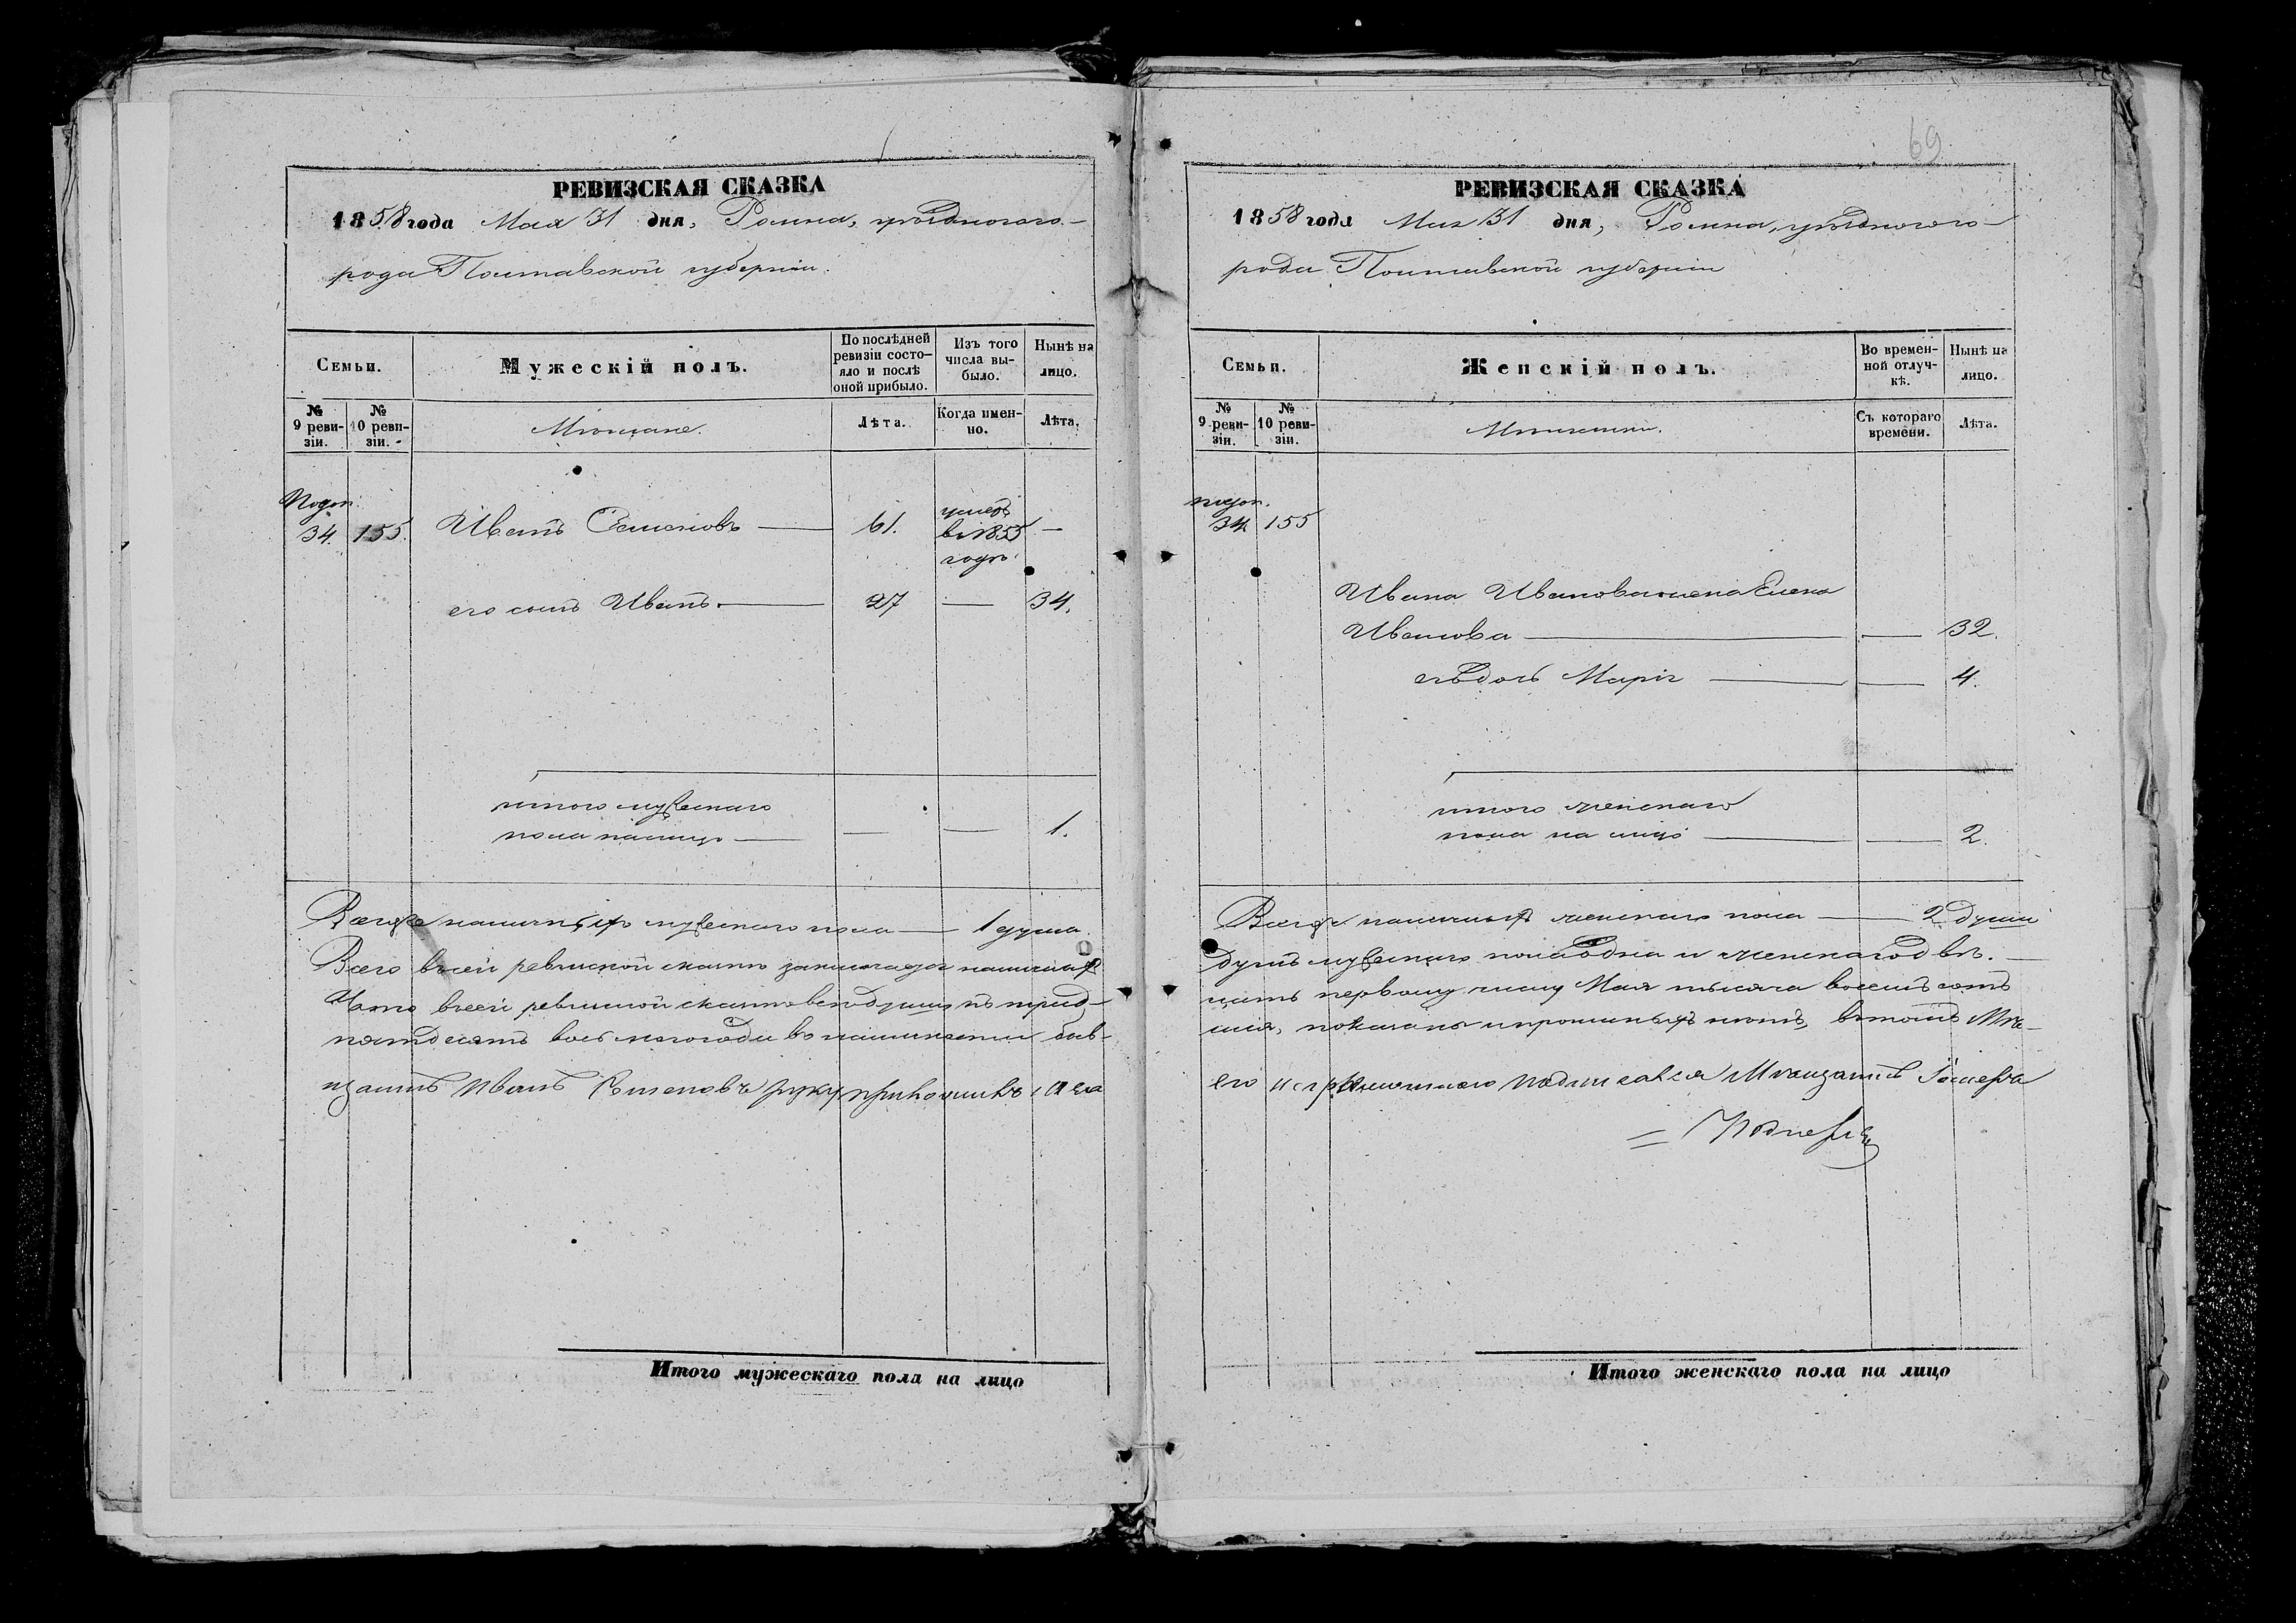 РЕВИЗСКАЯ СКАЗКА
1858 года Мая 31 дня, Ромна, уѣзднаго го-
рода Полтавской губерніи.
Семьи.
Мужескій полъ.
По послѣдней ревизіи состо-яло и послѣ оной прибыло.
Изъ того числа вы-было.
Нынѣ на лицо.
№ 9 реви-зіи.
№ 10 реви-зіи.
Мѣщане.
Лѣта.
Когда имен-но.
Лѣта.
34. 155. Иванъ Семеновъ — 61. умеръ в 1855 году —
его сынъ Иванъ. — 27 — 34.
итого мужескаго
пола налицо — — — 1.
Всего наличныхъ мужескаго пола — 1 душа.
Всего в сей ревизской сказке заключается наличныхъ
Что в сей ревизской сказке все души къ трид-
пятдесятъ восьмого года в наличности быв-
щанинъ Иванъ Семеновъ руку приложилъ, а за
Итого мужескаго пола на лицо
69
РЕВИЗСКАЯ СКАЗКА
1858 года Мая 31 дня, Ромна, уѣзднаго го-
рода Полтавской губерніи
Семьи.
Женскій полъ.
Во времен-ной отлуч-кѣ.
Нынѣ на лицо.
№ 9 реви-зіи.
№ 10 реви-зіи.
Мѣщанки.
Съ котораго времени.
Лѣта.
34. 155
Ивана Иванова жена Елена
Иванова — — 32.
ея дочь Марія — — 4.
итого женскаго
пола на лицо — — 2.
Всего наличныхъ женскаго пола — 2 души
душъ мужескаго пола одна и женскаго двѣ. —
цать первому числу Мая тысяча восемь сотъ
шія, показаны и прописныхъ нѣтъ, в томъ Мѣ-
его неграмотнаго подписался Мѣщанинъ
Итого женскаго пола на лицо